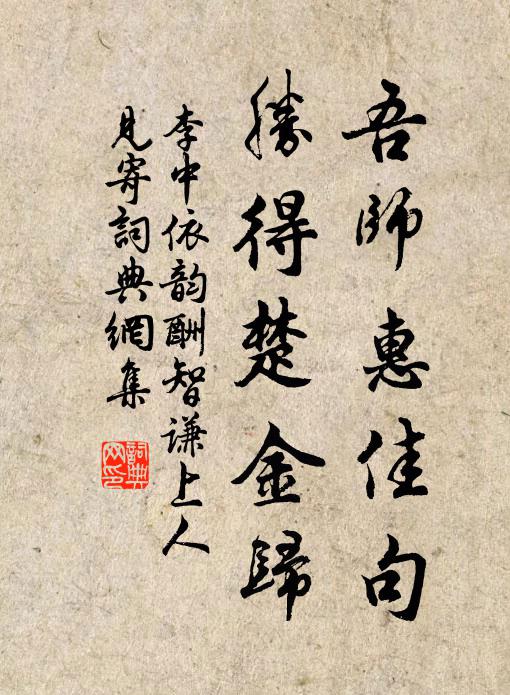 吾師惠佳句
勝得楚金歸
李中依韵酬智谦上人
見寄詞典網集
詞典
网印